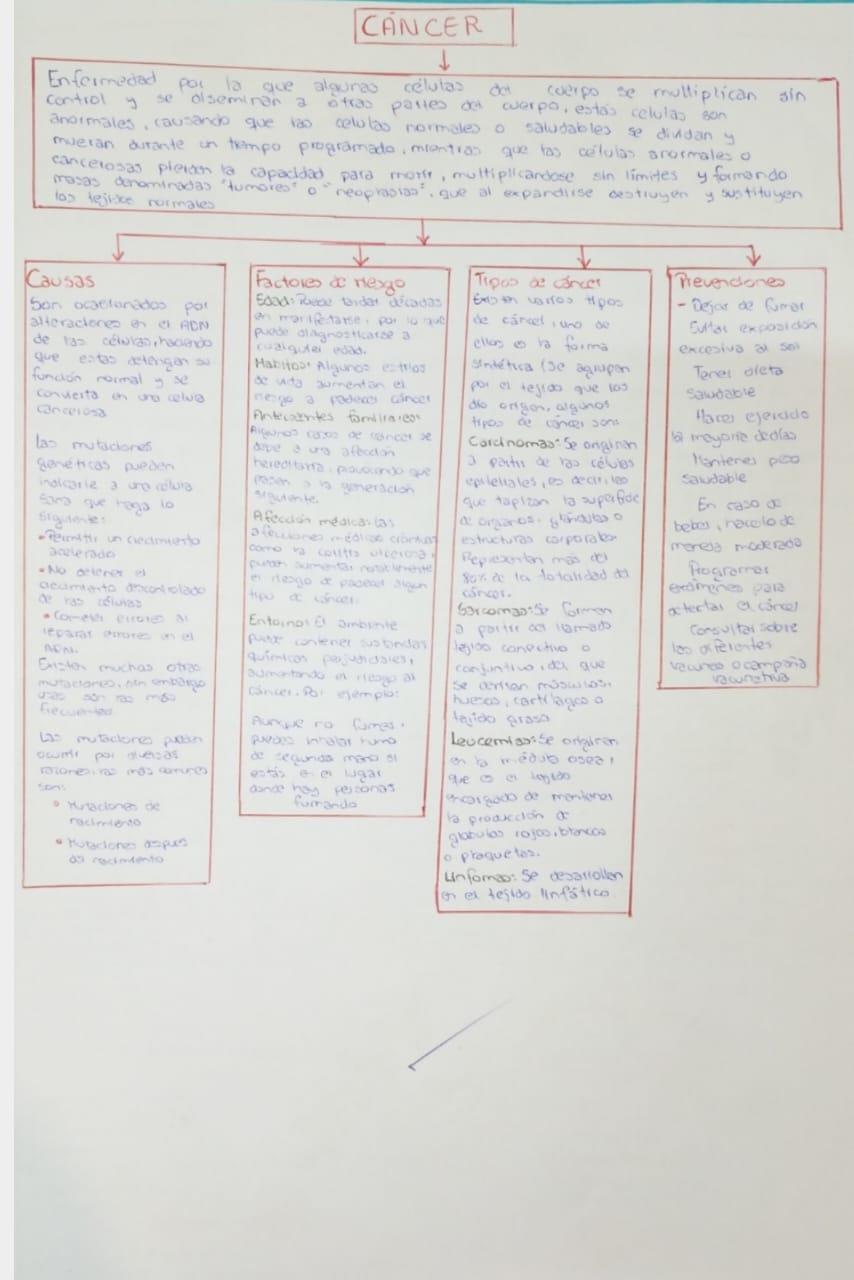 CÁNCER
Enfermedad por la que algunas células del cuerpo se multiplican sin
control y se diseminan a otras partes del cuerpo, estas celulas son
anormales, causando que las celulas normales o saludables se dividan y
mueran durante un tiempo programado, mientras que las células anormales o
cancerosas pierden la capacidad para morir, multiplicandose sin límites y formando
masas denominadas "tumores" o "neoplasias", que al expandirse destruyen y sustituyen
los tejidos normales
Causas
Son ocacionados por
alteraciones en el ADN
de las células, haciendo
que estas detengan su
función normal y se
convierta en una celula
cancerosa
Las mutaciones
genéticas pueden
indicarle a una célula
sana que haga lo
siguiente:
• Permitir un crecimiento
acelerado
• No detener el
crecimiento descontrolado
de las células
• Cometer errores al
reparar errores en el
ADN.
Existen muchas otras
mutaciones, sin embargo
son las más
frecuentes.
Las mutaciones pueden
ocurrir por diversas
razones, las más comunes
son:
• Mutaciones de
nacimiento
• Mutaciones despues
del nacimiento
Factores de riesgo
Edad: Puede tardar décadas
en manifestarse, por lo que
puede diagnosticarse a
cualquier edad.
Habitos: Algunos estilos
de vida aumentan el
riesgo a padecer cáncer
Antecedentes familiares:
Algunos casos de cáncer se
debe a una afección
hereditaria, provocando que
pasen a la generación
siguiente.
Afección médica: las
afecciones médicas crónicas
como la colitis ulcerosa,
puedan aumentar notablemente
el riesgo de padecer algun
tipo de cáncer.
Entorno: El ambiente
puede contener sustancias
químicas perjudiciales,
aumentando el riesgo al
cáncer. Por ejemplo:
Aunque no fumes,
puedes inhalar humo
de segunda mano si
estás en el lugar
donde hay personas
fumando
Tipos de cáncer
Existen varios tipos
de cáncer, uno de
ellos es la forma
sintética (Se agrupan
por el tejido que los
dio origen, algunos
tipos de cáncer son:
Carcinomas: Se originan
a partir de las células
epiteliales, es decir, las
que tapizan la superficie
de organos, glándulas o
estructuras corporales
Representan más del
80% de la totalidad del
cáncer.
Sarcomas: Se forman
a partir del llamado
tejido conectivo o
conjuntivo, del que
se derivan músculos,
huesos, cartílagos o
tejido graso
Leucemias: Se originan
en la médula osea,
que es el tejido
encargado de mantener
la producción de
glóbulos rojos, blancos
o plaquetas.
Linfomas: Se desarrollan
en el tejido linfático.
Prevenciones
- Dejar de fumar
Evitar exposición
excesiva al sol
Tener dieta
saludable
Hacer ejercicio
la mayoria de días
Mantener peso
saludable
En caso de
beber, hacerlo de
manera moderada
Programar
exámenes para
detectar el cáncer
Consultar sobre
las diferentes
vacunas o campaña
vacunativa